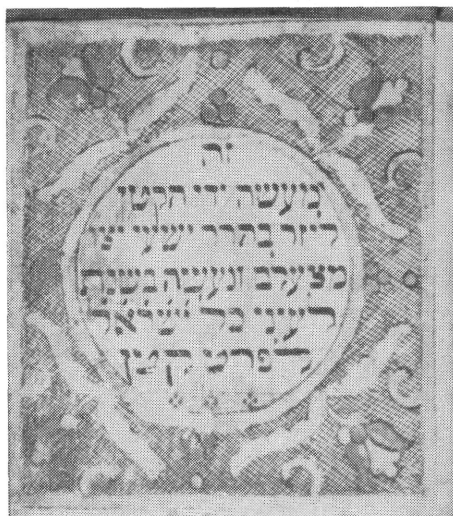 זה
מעשה ידי הקטן
ליזר בהרר ישעי
ונעשה בשנת
לעיני כל ישראל
לפרט קטן